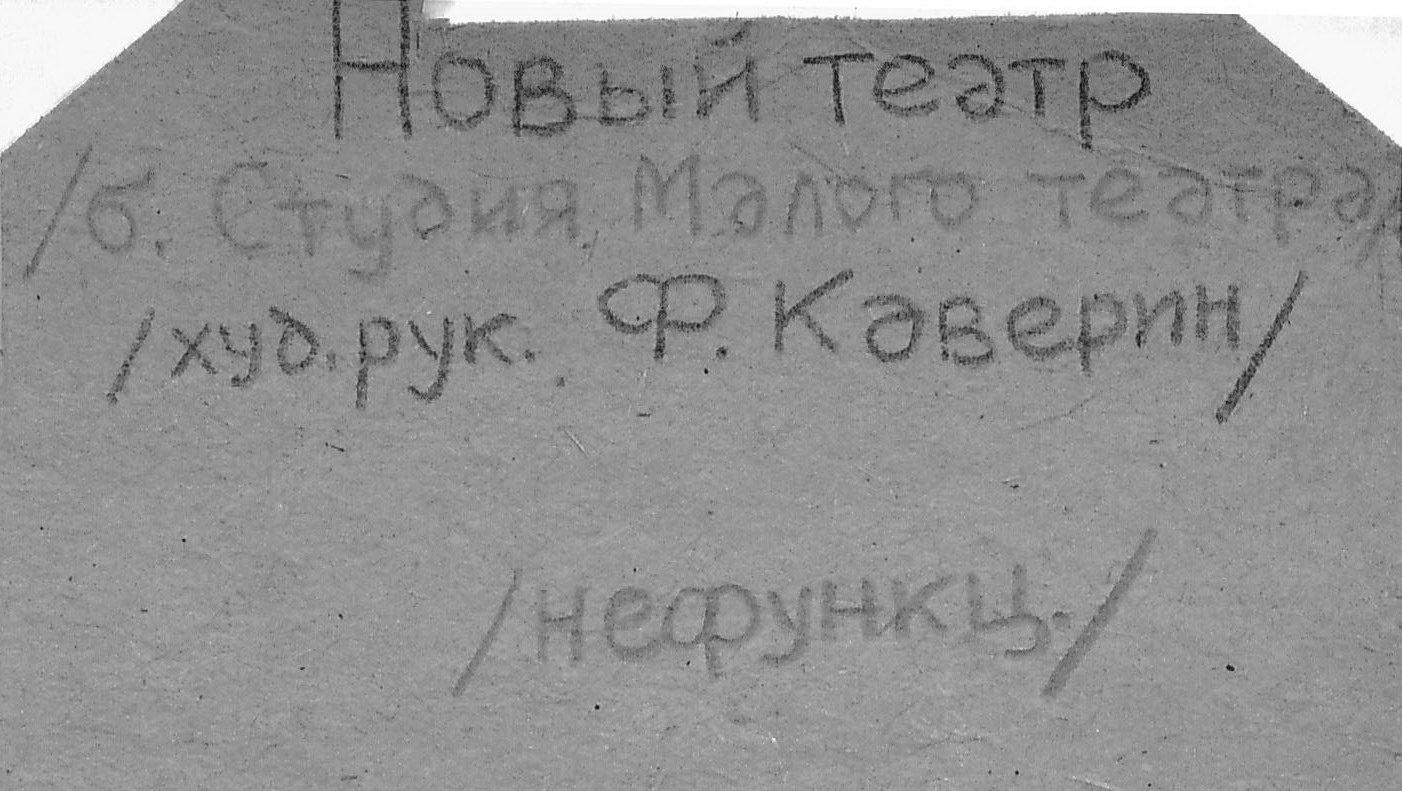 Новый театр
/б. Студия Малого театра/
/худ.рук. Ф. Каверин/
/нефункц./